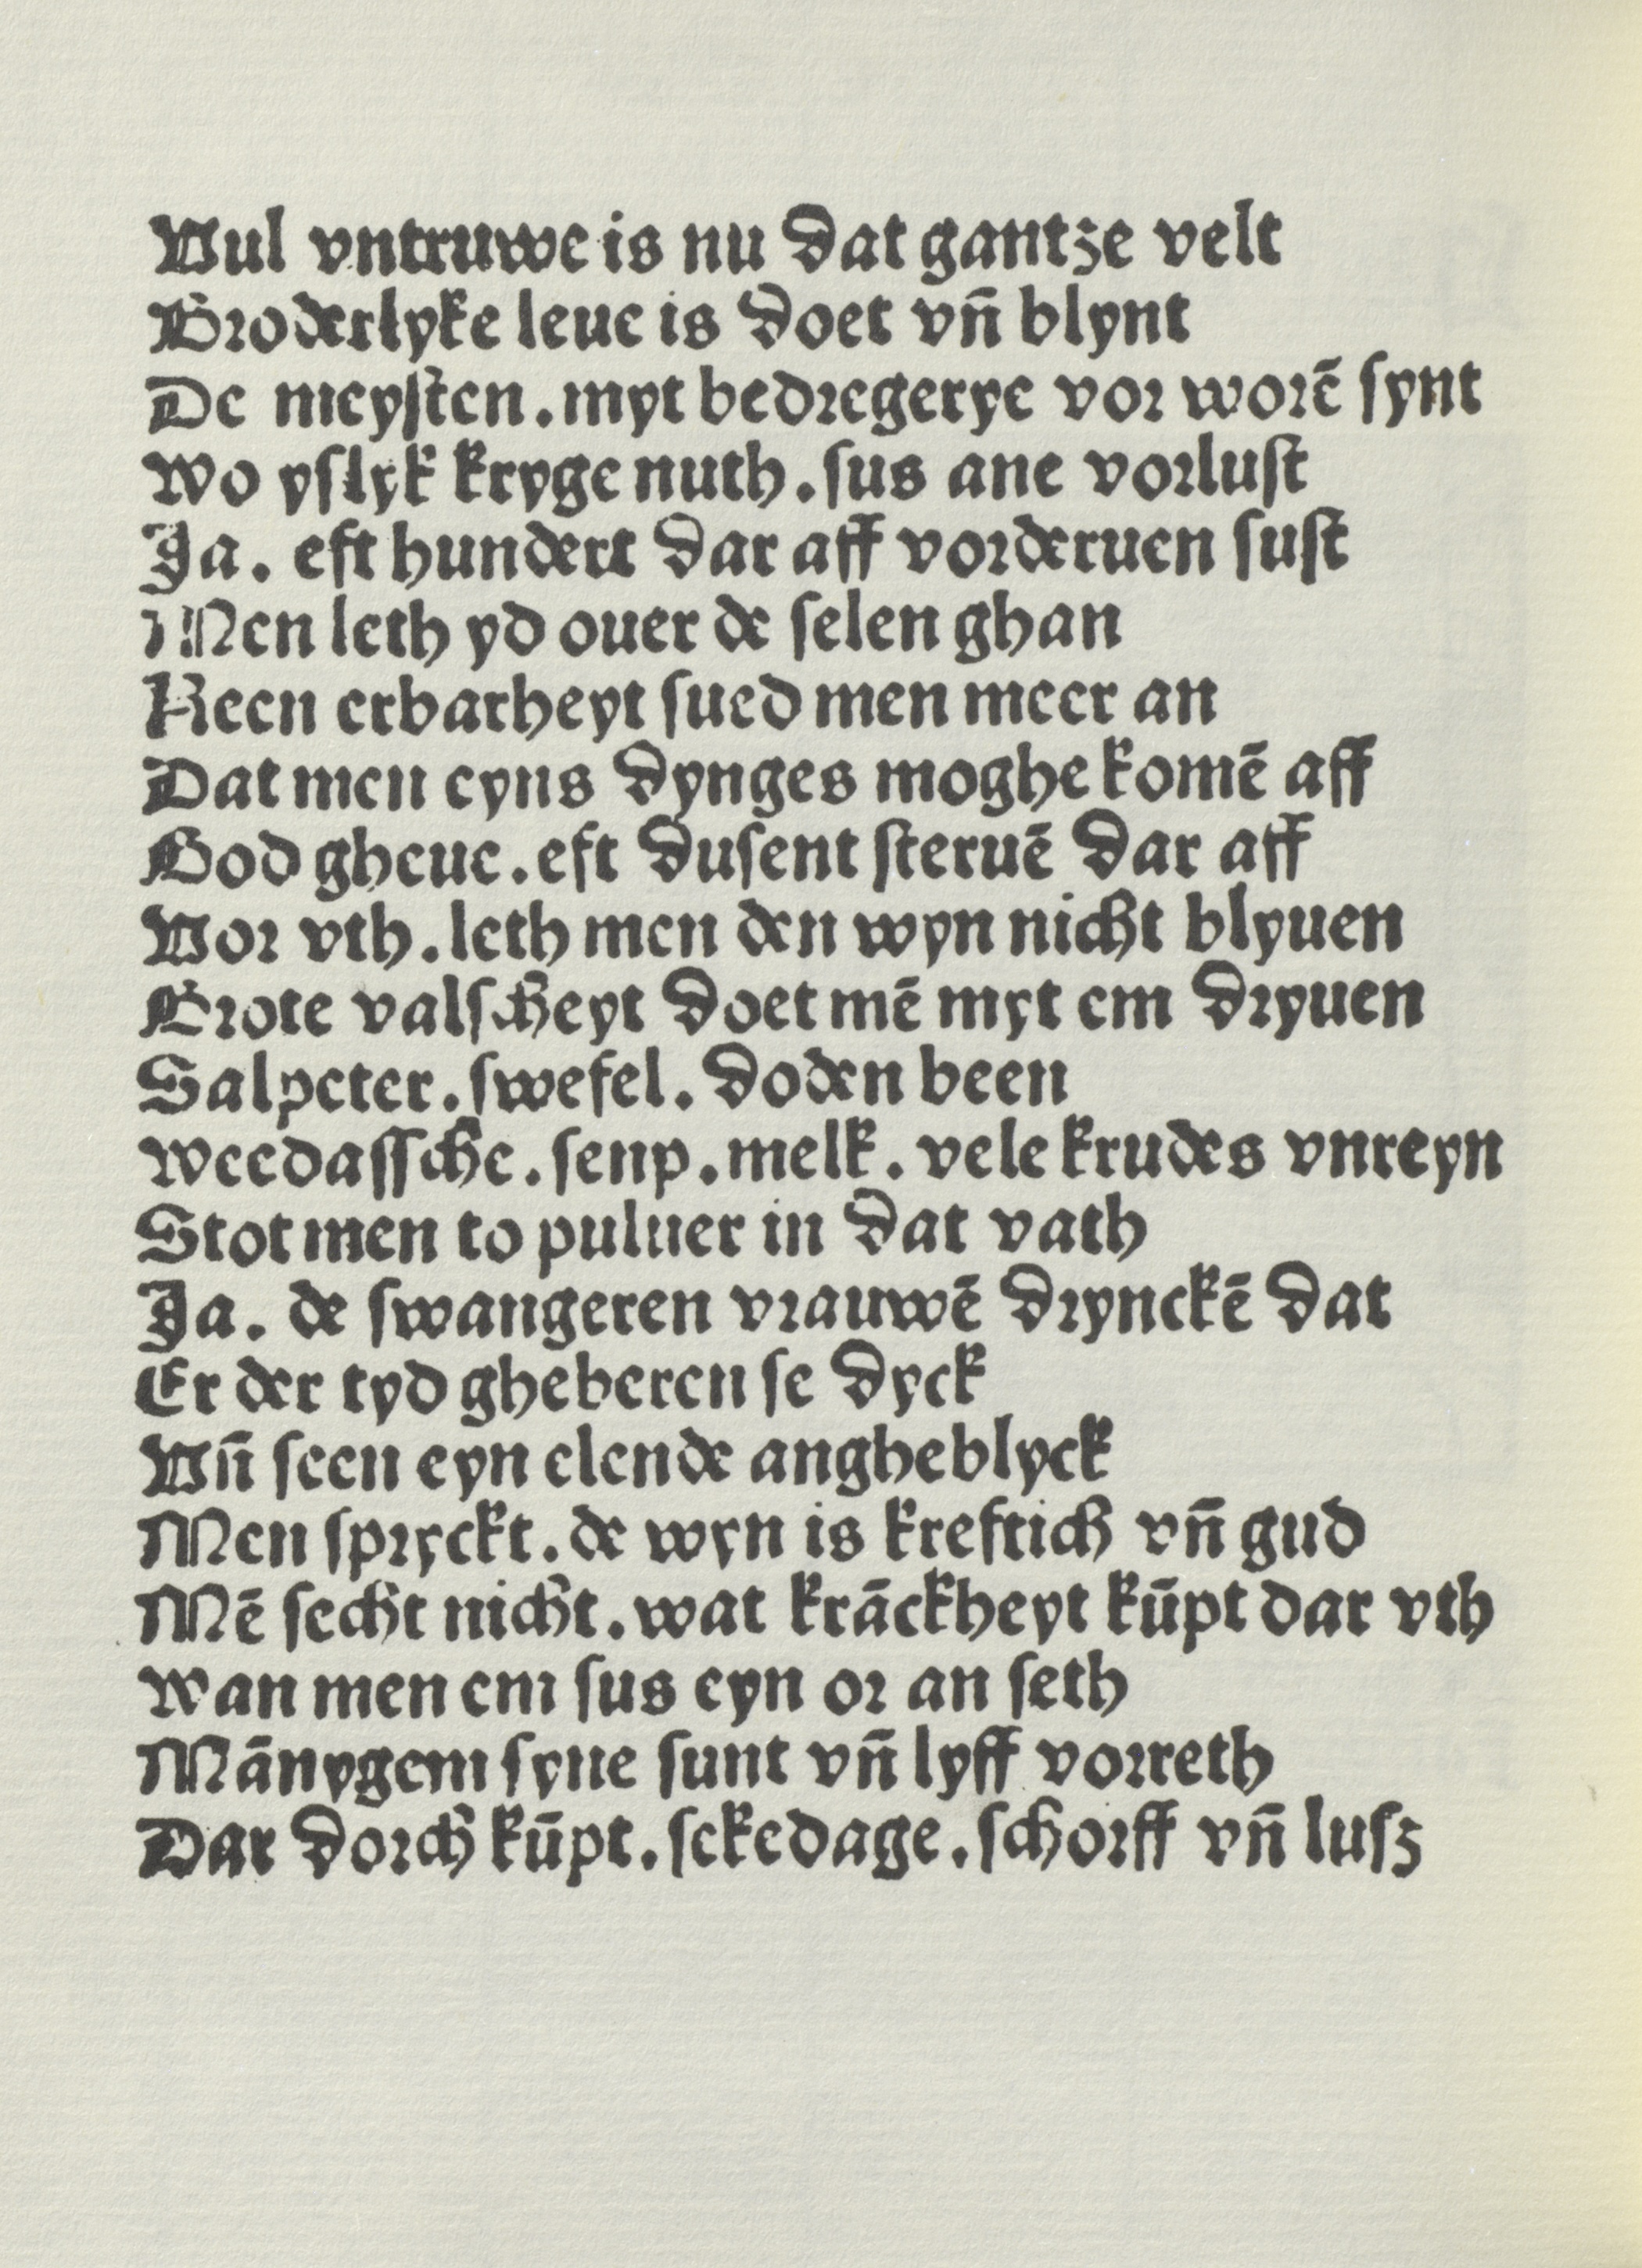 Vul vntruwe is nu dat gantze velt
Broderlyke leue is doet vñ blynt
De meyſten . myt bedregerye vor worē ſynt
Wo yſlyk kryge nuth . ſus ane vorluſt
Ja . eft hundert dar aff vorderuen ſuſt
Men leth yd ouer de ſelen ghan
Keen erbarheyt ſued men meer an
Dat men eyns dynges moghe komē aff
God gheue . eft duſent ſteruē dar aff
Vor vth . leth men den wyn nicht blyuen
Grote valſcheyt doet mē myt em dryuen
Salpeter . ſwefel . doden been
Weedaſſche . ſenp . melk . vele krudes vnreyn
Stot men to puluer in dat vath
Ja . de ſwangeren vrauwē drynckē dat
Er der tyd gheberen ſe dyck
Vñ ſeen eyn elende angheblyck
Men ſpryckt . de wyn is kreftich vñ gud
Mē ſecht nicht . wat krāckheyt kūpt dar vth
Wan men em ſus eyn or an ſeth
Mānygem ſyne ſunt vñ lyff vorreth
Dar dorch kūpt . ſekedage . ſchorff vñ luſz